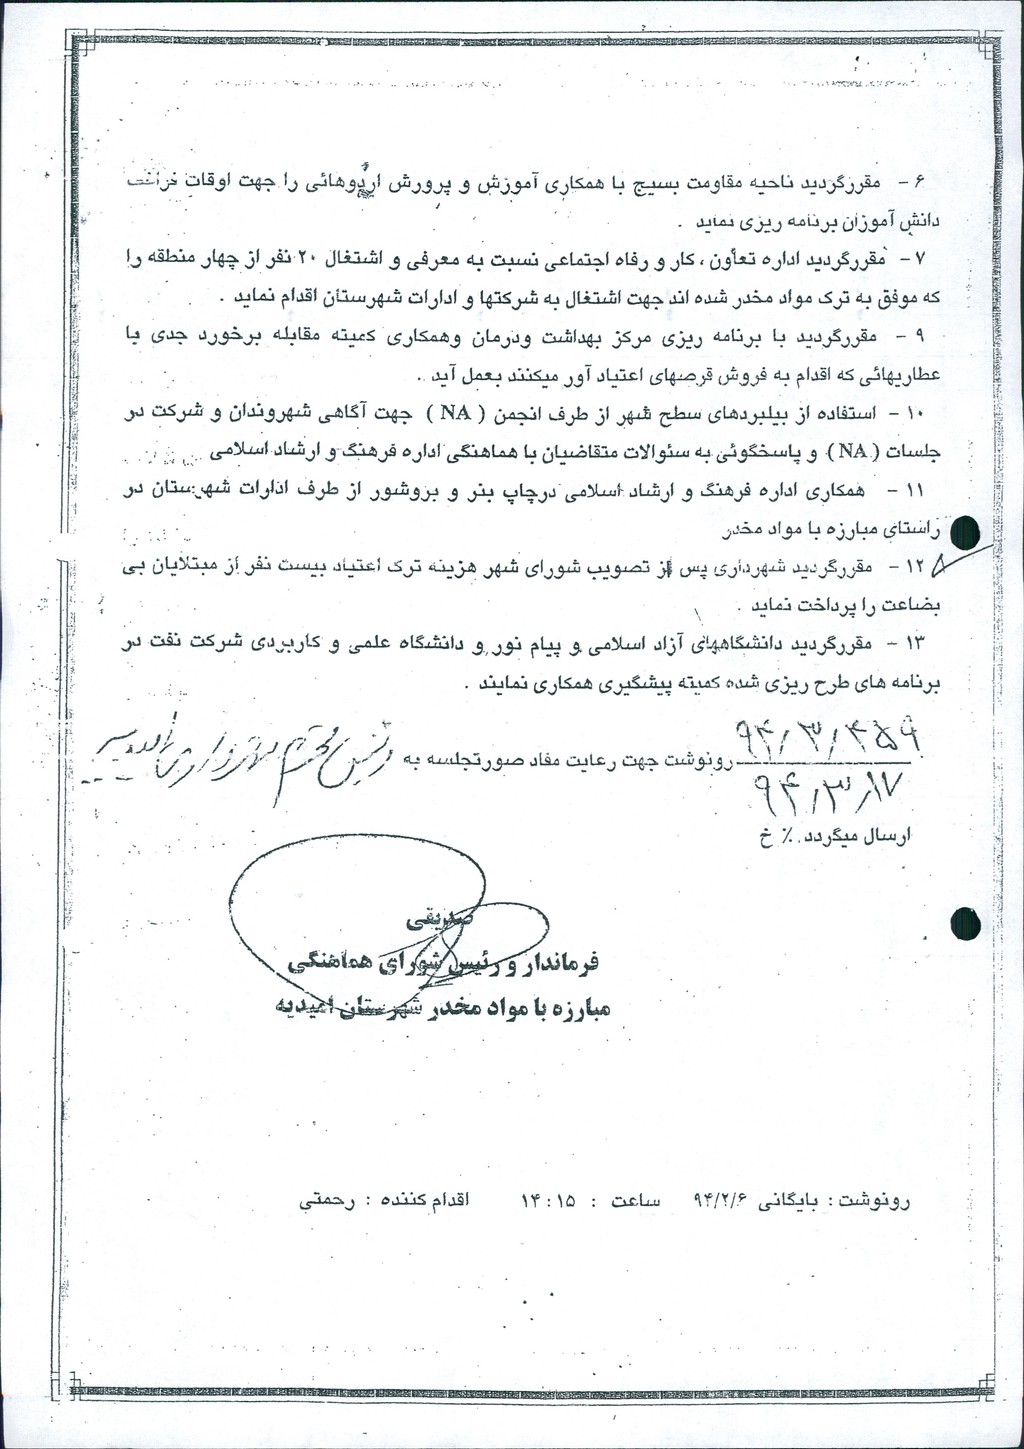 ۶ - مقررگردید ناحیه مقاومت بسیج با همکاری آموزش و پرورش اردوهائی را جهت اوقات فراغت
دانش آموزان برنامه ریزی نماید .
۷ - مقررگردید اداره تعاون ، کار و رفاه اجتماعی نسبت به معرفی و اشتغال ۲۰ نفر از چهار منطقه را
که موفق به ترک مواد مخدر شده اند جهت اشتغال به شرکتها و ادارات شهرستان اقدام نماید .
۹ - مقررگردید با برنامه ریزی مرکز بهداشت ودرمان وهمکاری کمیته مقابله برخورد جدی با
عطاریهائی که اقدام به فروش قرصهای اعتیاد آور میکنند بعمل آید .
۱۰ - استفاده از بیلبردهای سطح شهر از طرف انجمن ( NA ) جهت آگاهی شهروندان و شرکت در
جلسات ( NA ) و پاسخگوئی به سئوالات متقاضیان با هماهنگی اداره فرهنگ و ارشاد اسلامی
۱۱ - همکاری اداره فرهنگ و ارشاد اسلامی درچاپ بنر و بروشور از طرف ادارات شهرستان در
راستای مبارزه با مواد مخدر
۱۲ - مقررگردید شهرداری پس از تصویب شورای شهر هزینه ترک اعتیاد بیست نفر از مبتلایان بی
بضاعت را پرداخت نماید .
۱۳ - مقررگردید دانشگاههای آزاد اسلامی و پیام نور و دانشگاه علمی و کاربردی شرکت نفت در
برنامه های طرح ریزی شده کمیته پیشگیری همکاری نمایند .
۹۴/۳/۴۵۹
رونوشت جهت رعایت مفاد صورتجلسه به رئیس محترم شهرداری امیدیه
۹۴/۳/۱۷
ارسال میگردد. ٪ خ
صدیقی
فرماندار و رئیس شورای هماهنگی
مبارزه با مواد مخدر شهرستان امیدیه
رونوشت : بایگانی ۹۴/۲/۶ ساعت : ۱۴:۱۵ اقدام کننده : رحمتی